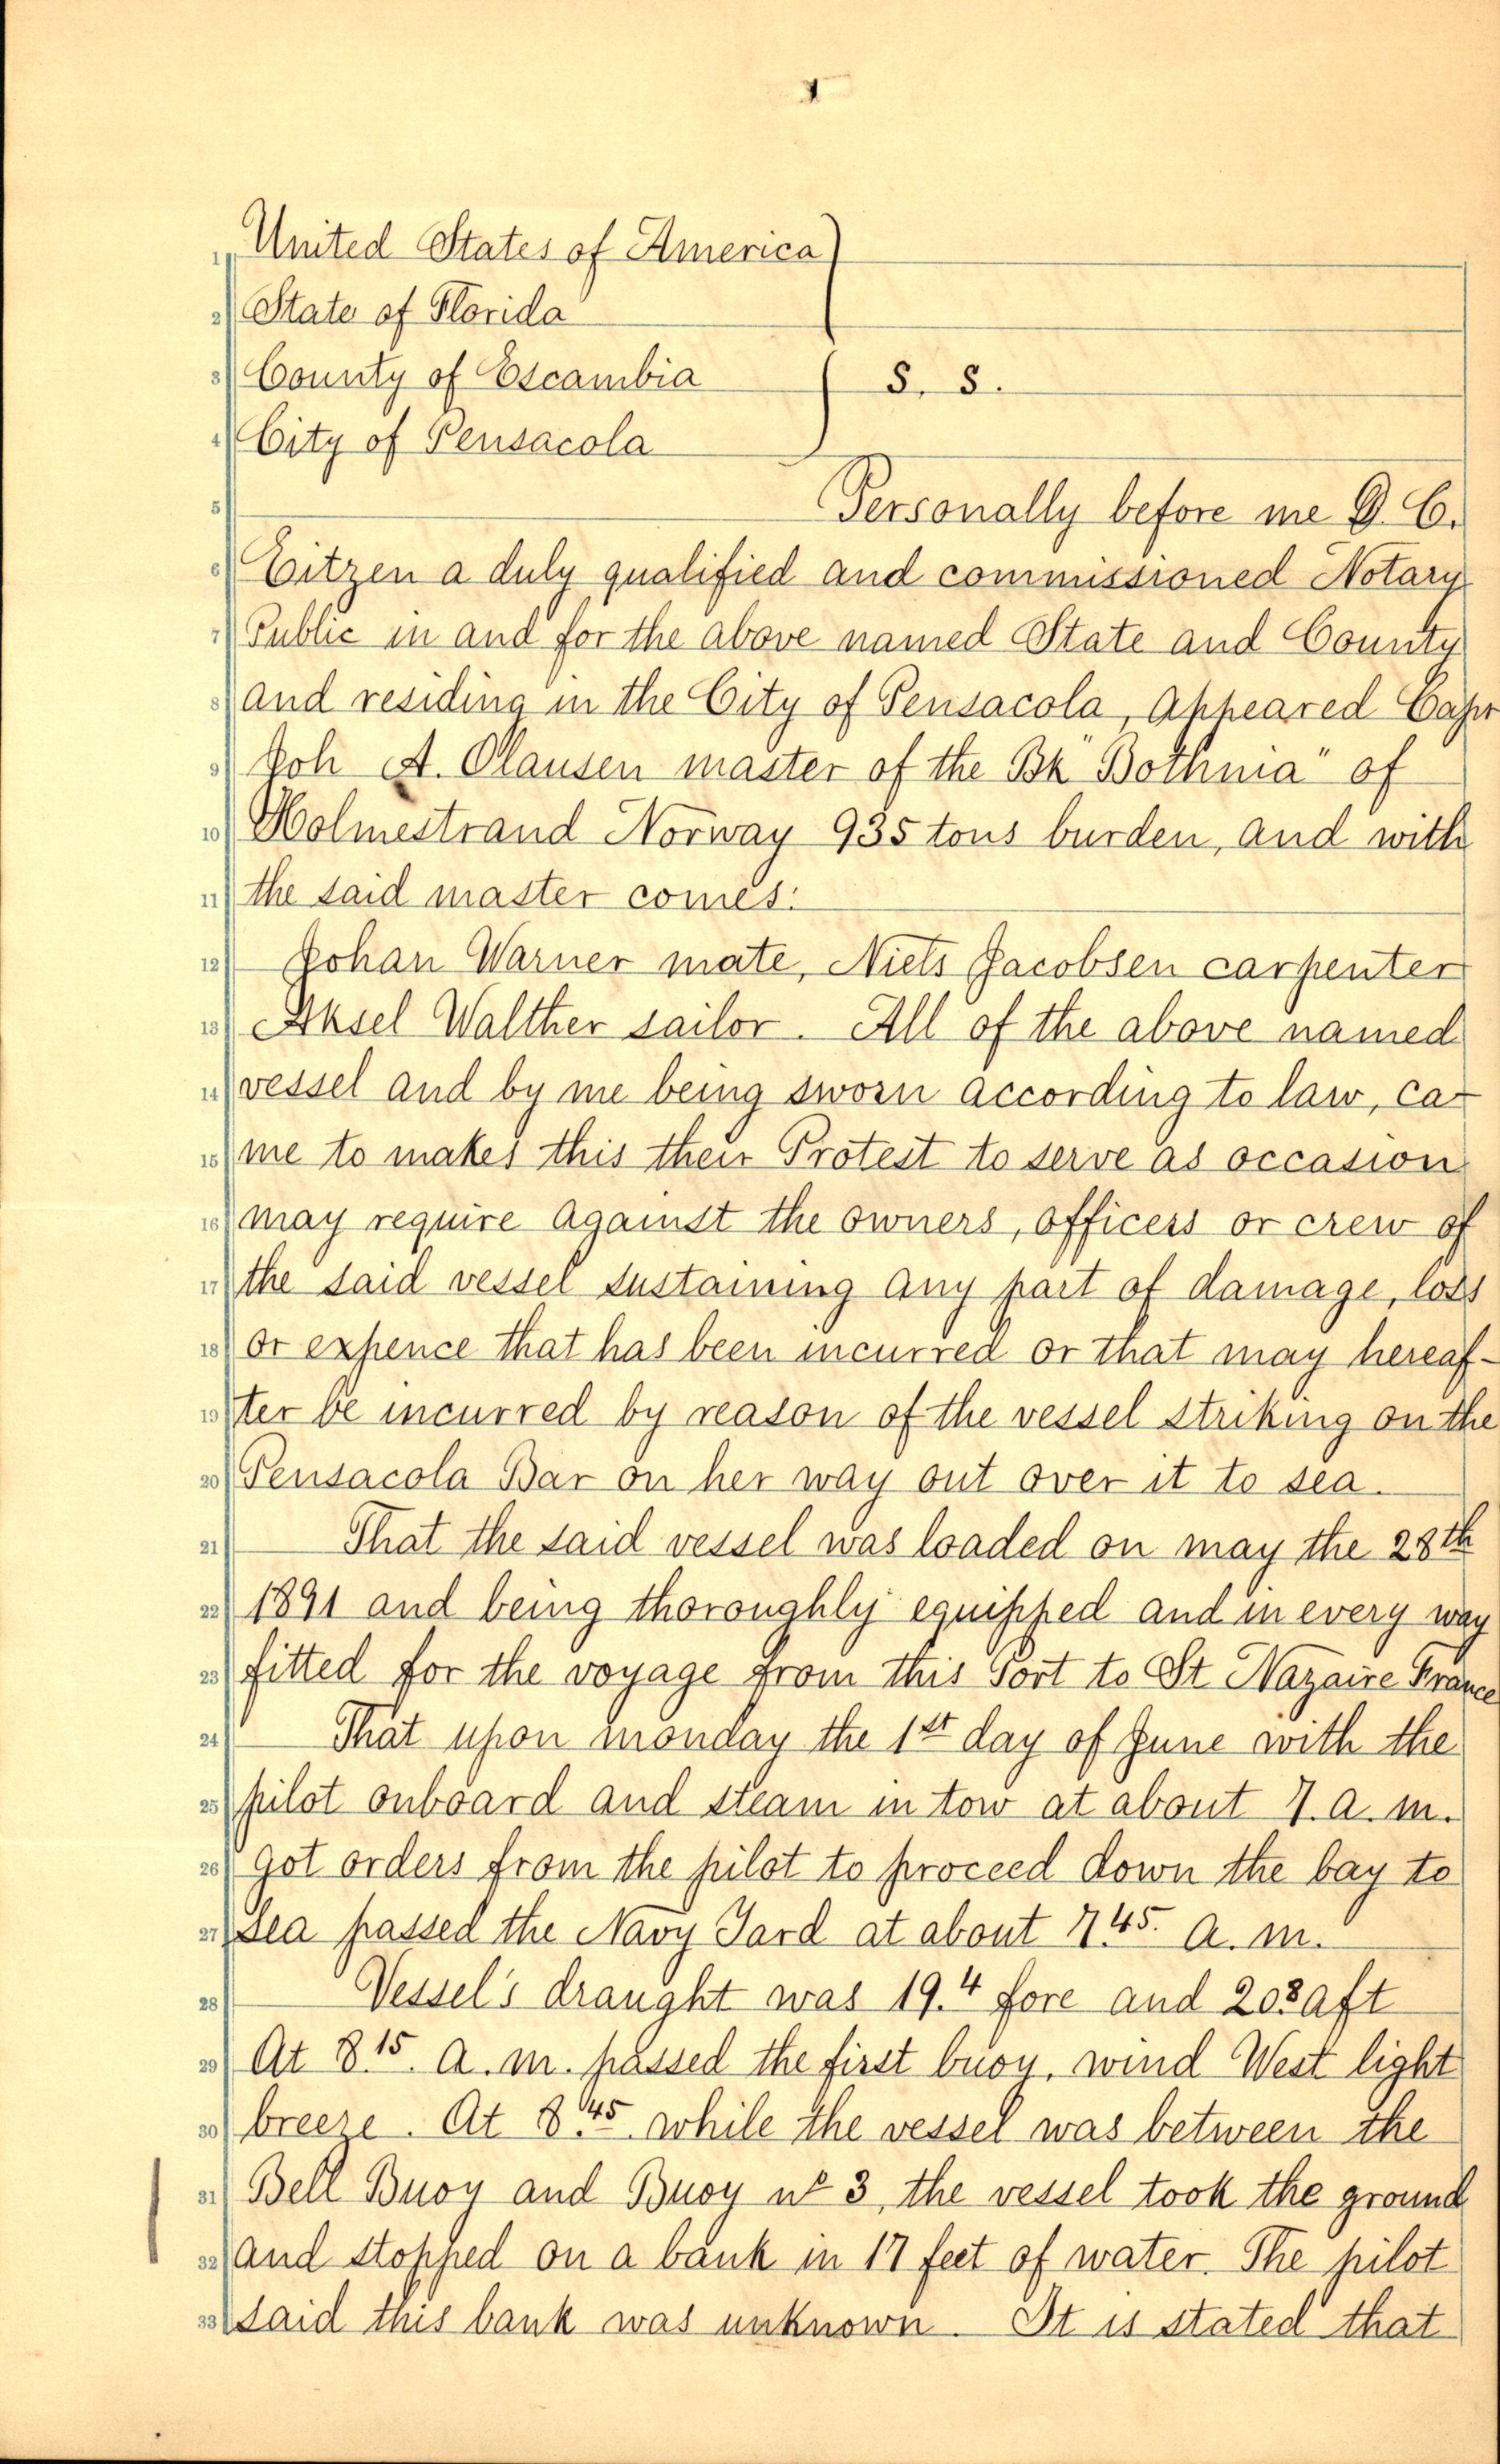 1
1 United States of America
2 State of Florida
3 County of Escambia S. S.
4 City of Pensacola
5 Personally before me D. C.
6 Eitzen a duly qualified and commissioned Notary
7 Public in and for the above named State and County
8 and residing in the City of Pensacola, appeared Capt
9 Joh A. Olausen master of the Bk "Bothnia" of
10 Holmestrand Norway 935 tons burden, and with
11 the said master comes:
12 Johan Warner mate, Niels Jacobsen carpenter
13 Aksel Walther sailor. All of the above named
14 vessel and by me being sworn according to law, ca-
15 me to makes this their Protest to serve as occasion
16 may require against the owners, officers or crew of
17 the said vessel sustaining any part of damage, loss
18 or expence that has been incurred or that may hereaf-
19 ter be incurred by reason of the vessel striking on the
20 Pensacola Bar on her way out over it to sea.
21 That the said vessel was loaded on may the 28th
22 1891 and being thoroughly equipped and in every way
23 fitted for the voyage from this Port to St Nazaire France
24 That upon monday the 1st day of June with the
25 pilot onboard and steam in tow at about 7. a. m.
26 got orders from the pilot to proceed down the bay to
27 sea passed the Navy Yard at about 7.45. a. m.
28 Vessel's draught was 19.4 fore and 20.8 aft
29 At 8.15. a. m. passed the first buoy, wind West light
30 breeze. At 8.45. while the vessel was between the
31 Bell Buoy and Buoy No 3, the vessel took the ground
32 and stopped on a bank in 17 feet of water. The pilot
33 said this bank was unknown. It is stated that